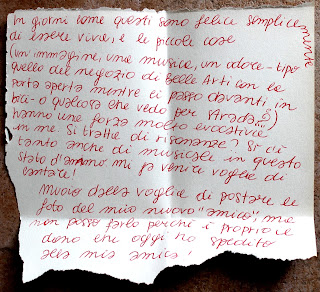 In giorni come questi sono felice semplicemente
di essere viva, e le piccole cose
(un'immagine, una musica, un odore - tipo
quello del negozio di Belle Arti con la
porta aperta mentre ci passo davanti, in
bici - o qualcosa che vedo per strada)
hanno una forza molto evocativa
in me. Si tratta di risonanza? Sì di
tanto anche di musicale in questo
stato d'animo mi fa venire voglia di
cantare!
Muoio dalla voglia di postare la
foto del mio nuovo "amico", ma
non posso farlo perché è proprio il
dono che oggi ho spedito
alla mia amica!